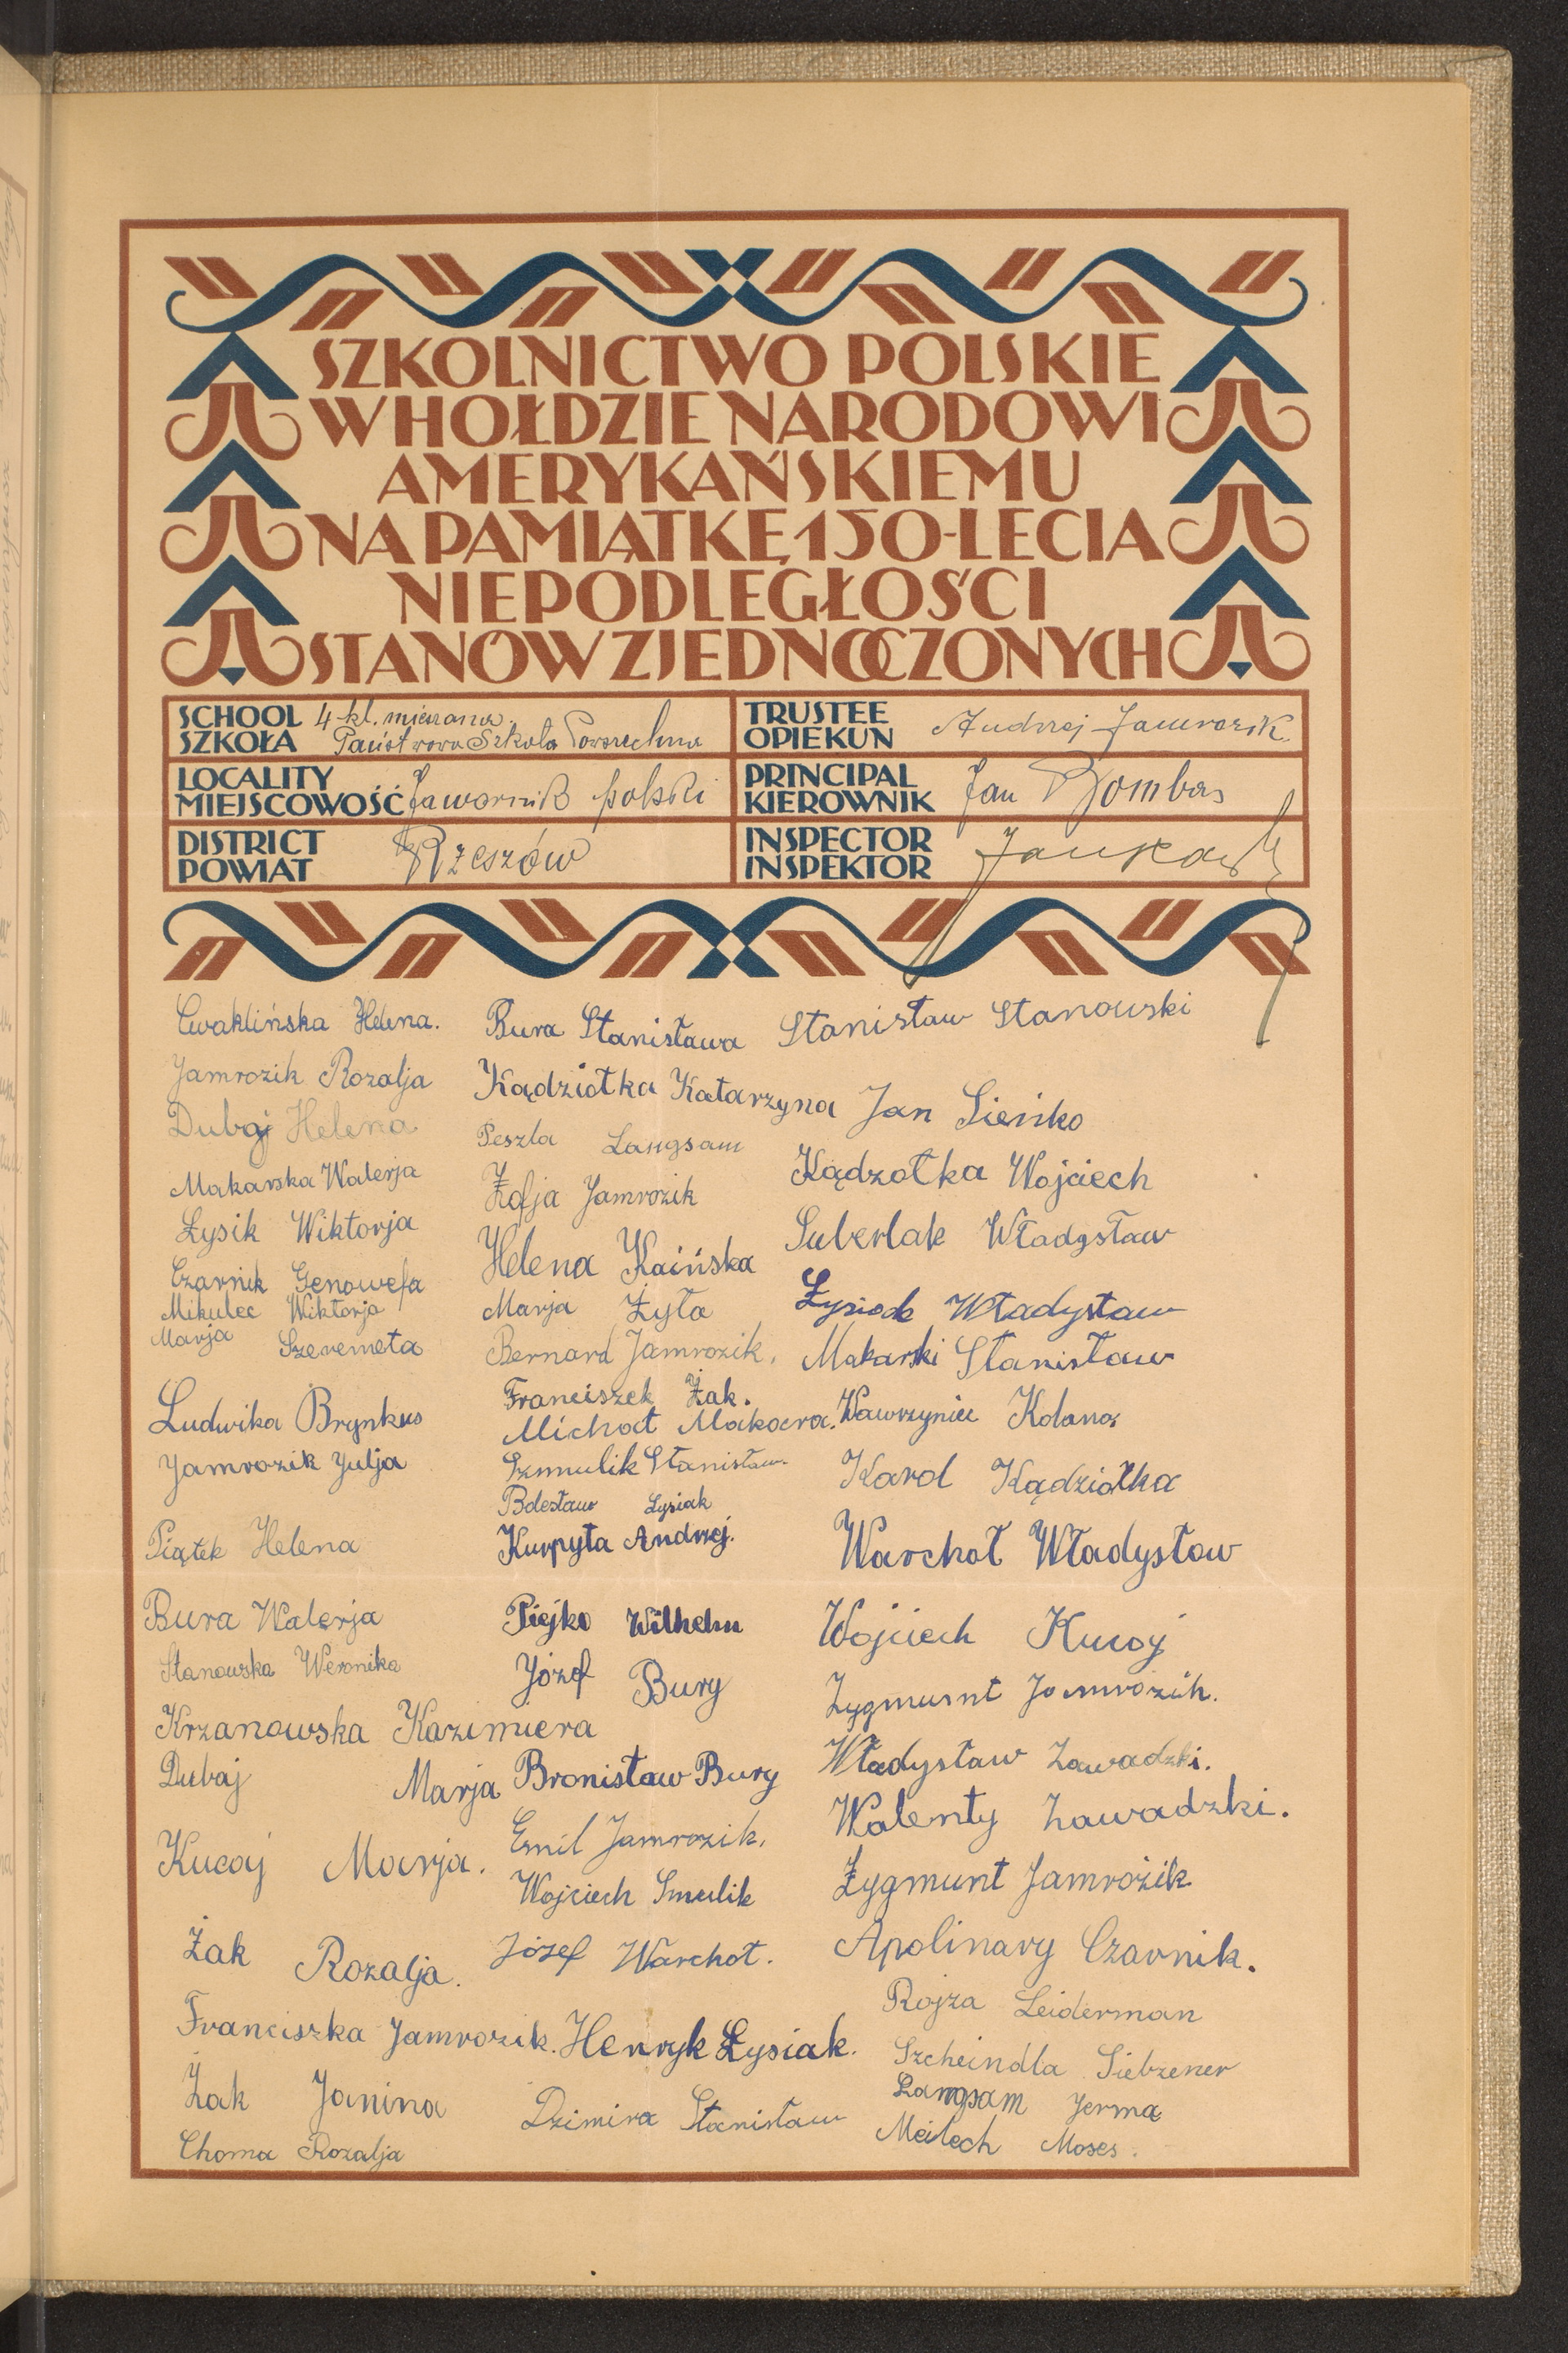 SZKOLNICTWO POLSKIE
W HOŁDZIE NARODOWI
AMERYKAŃSKIEMU
NA PAMIĄTKĘ 150-LECIA
NIEPODLEGŁOŚCI
STANÓW ZJEDNOCZONYCH
SCHOOL
SZKOŁA
4 kl. mieszana
Państwowa Szkoła Powszechna
TRUSTEE
OPIEKUN
Andrzej Jamrozik
LOCALITY
MIEJSCOWOŚĆ
Jawornik polski
PRINCIPAL
KIEROWNIK
Jan Bombas
DISTRICT
POWIAT
Rzeszów
INSPECTOR
INSPEKTOR
Cwaklińska Helena.
Jamrozik Rozalja
Dubaj Helena
Makarska Walerja
Łysik Wiktorja
Czarnik Genowefa
Mikulec Wiktorja
Marja Szeremeta
Ludwika Brynkus
Jamrozik Julja
Piątek Helena
Bura Walerja
Stanowska Weronika
Krzanowska Kazimiera
Dubaj Marja
Kucaj Marja.
Żak Rozalja.
Franciszka Jamrozik.
Żak Janina
Choma Rozalja
Bura Stanisława
Kądziołka Katarzyna
Peszla Langsam
Zofja Jamrozik
Helena Kaińska
Marja Żyła
Bernard Jamrozik.
Franciszek Żak.
Michał Makoara.
Szmulik Stanisław
Bolesław Łysiak
Kurpyta Andrzej.
Piejko Wilhelm
Józef Bury
Bronisław Bury
Emil Jamrozik.
Wojciech Smulik
Józef Warchoł.
Henryk Łysiak.
Dzimira Stanisław
Stanisław Stanowski
Jan Sieńko
Kądzołka Wojciech
Suberlak Władysław
Łysiak Władysław
Makarski Stanisław
Wawrzyniec Kolano
Karol Kądziołka
Warchoł Władysław
Wojciech Kucaj
Zygmumt Jamrozik.
Władysław Zawadzki.
Walenty Zawadzki.
Zygmunt Jamrozik
Apolinary Czarnik.
Rojza Leiderman
Szcheindla Siebzener
Langsam Jerma
Meilech Moses.